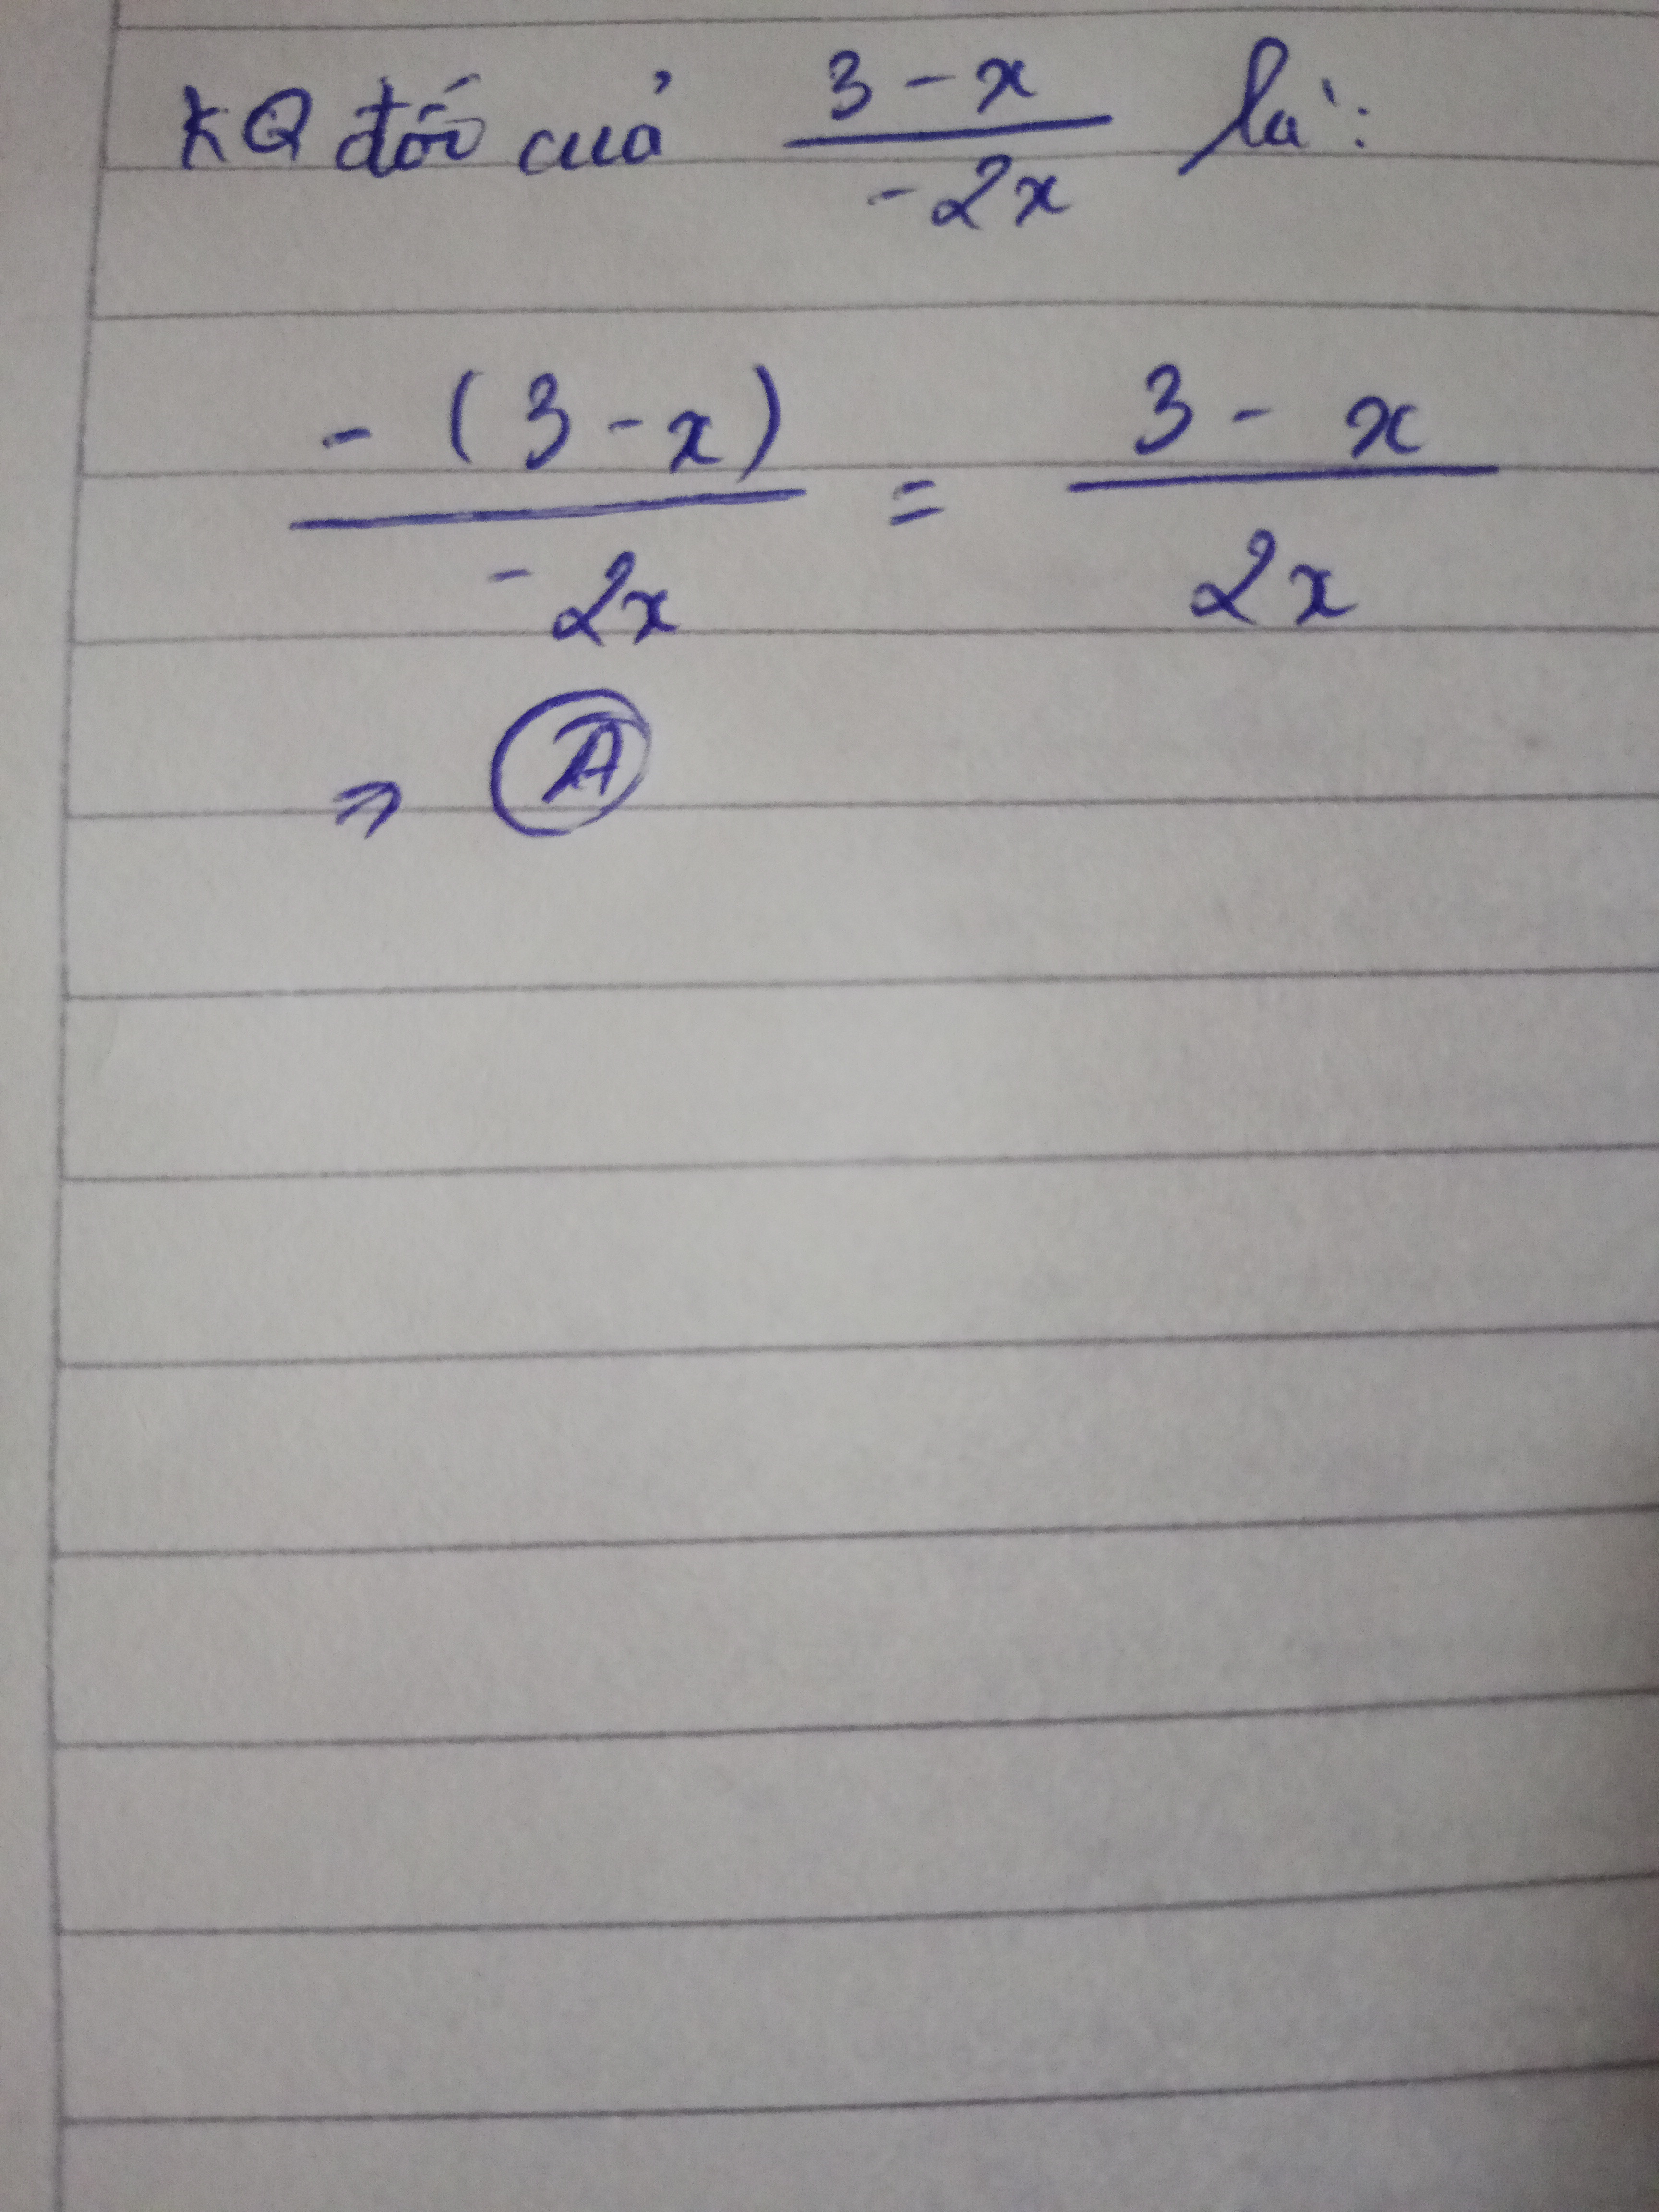 KQ đối của (3 - x)/(-2x) là:
(-(3 - x))/(-2x) = (3 - x)/(2x)
⇒ A